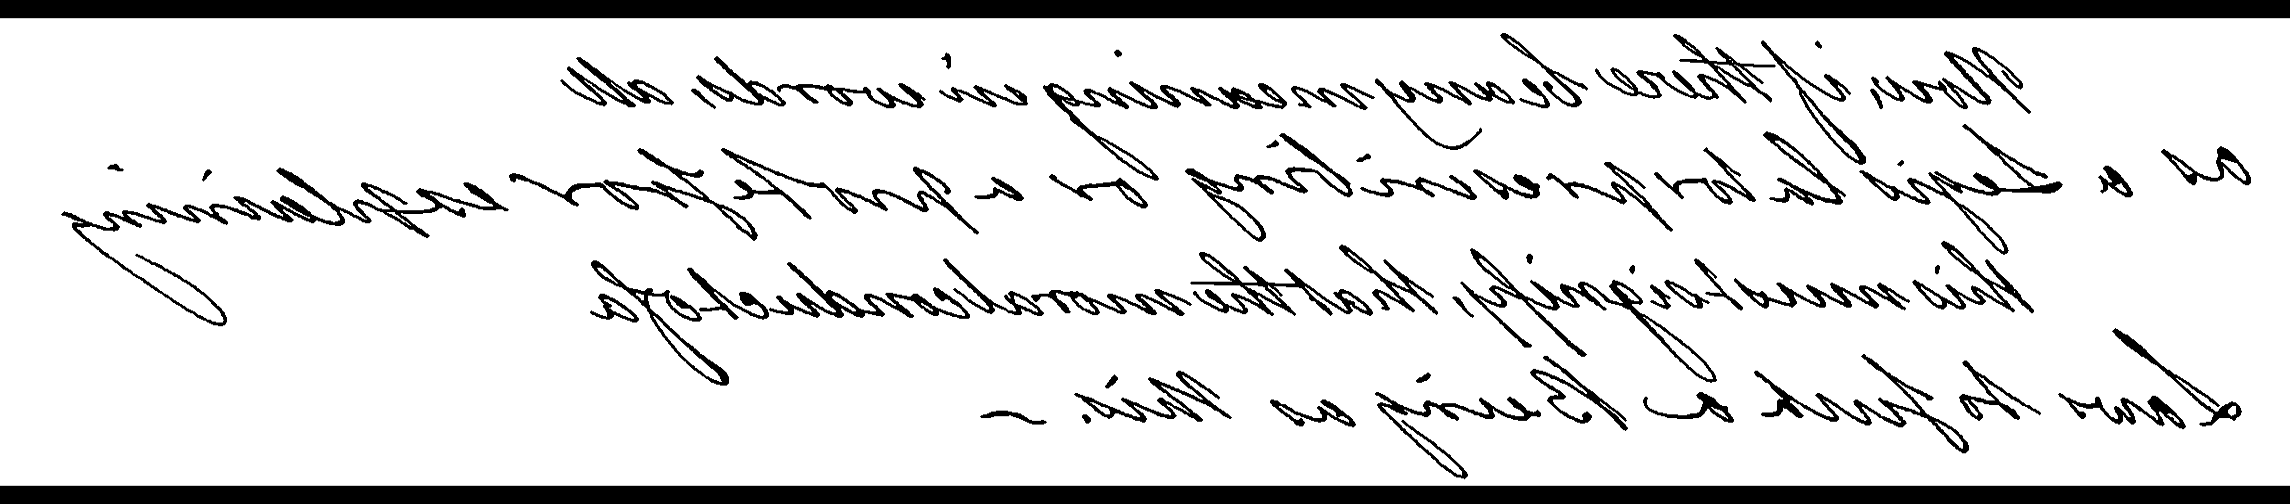 Now, if there be any meaning in words, all
as a Legislator prescribing or a professor explaining
this must signify, that the moral conduct of a
Laws to such a Being as this. –